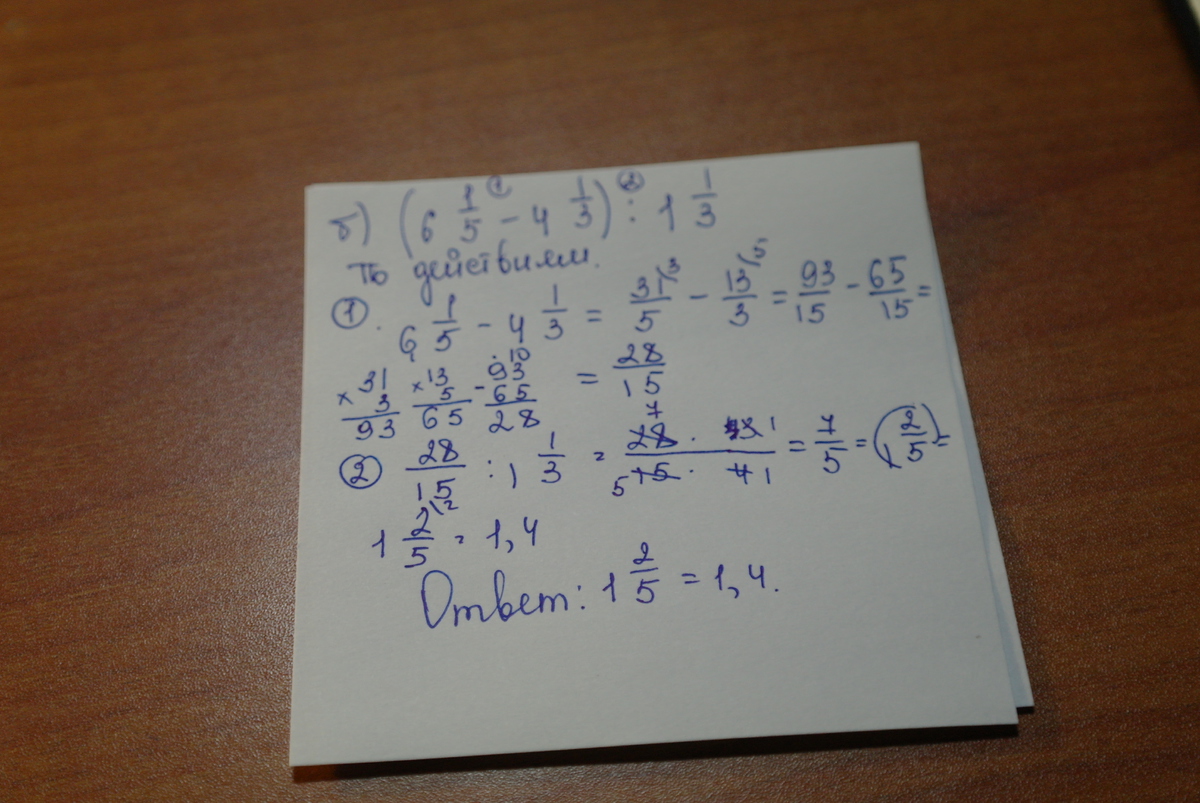 б) (6 1/5 ① - 4 1/3) ② : 1 1/3
По действиям.
①. 6 1/5 - 4 1/3 = 31/5 \3 - 13/3 \5 = 93/15 - 65/15 =
×31 ×13 -93
3 5 65
93 65 28
= 28/15
② 28/15 : 1 1/3 = 28 · 3 / 15 · 4 = 7/5 = (1 2/5) =
7 1
5 1
1 2/5 \2 = 1,4
Ответ: 1 2/5 = 1,4.